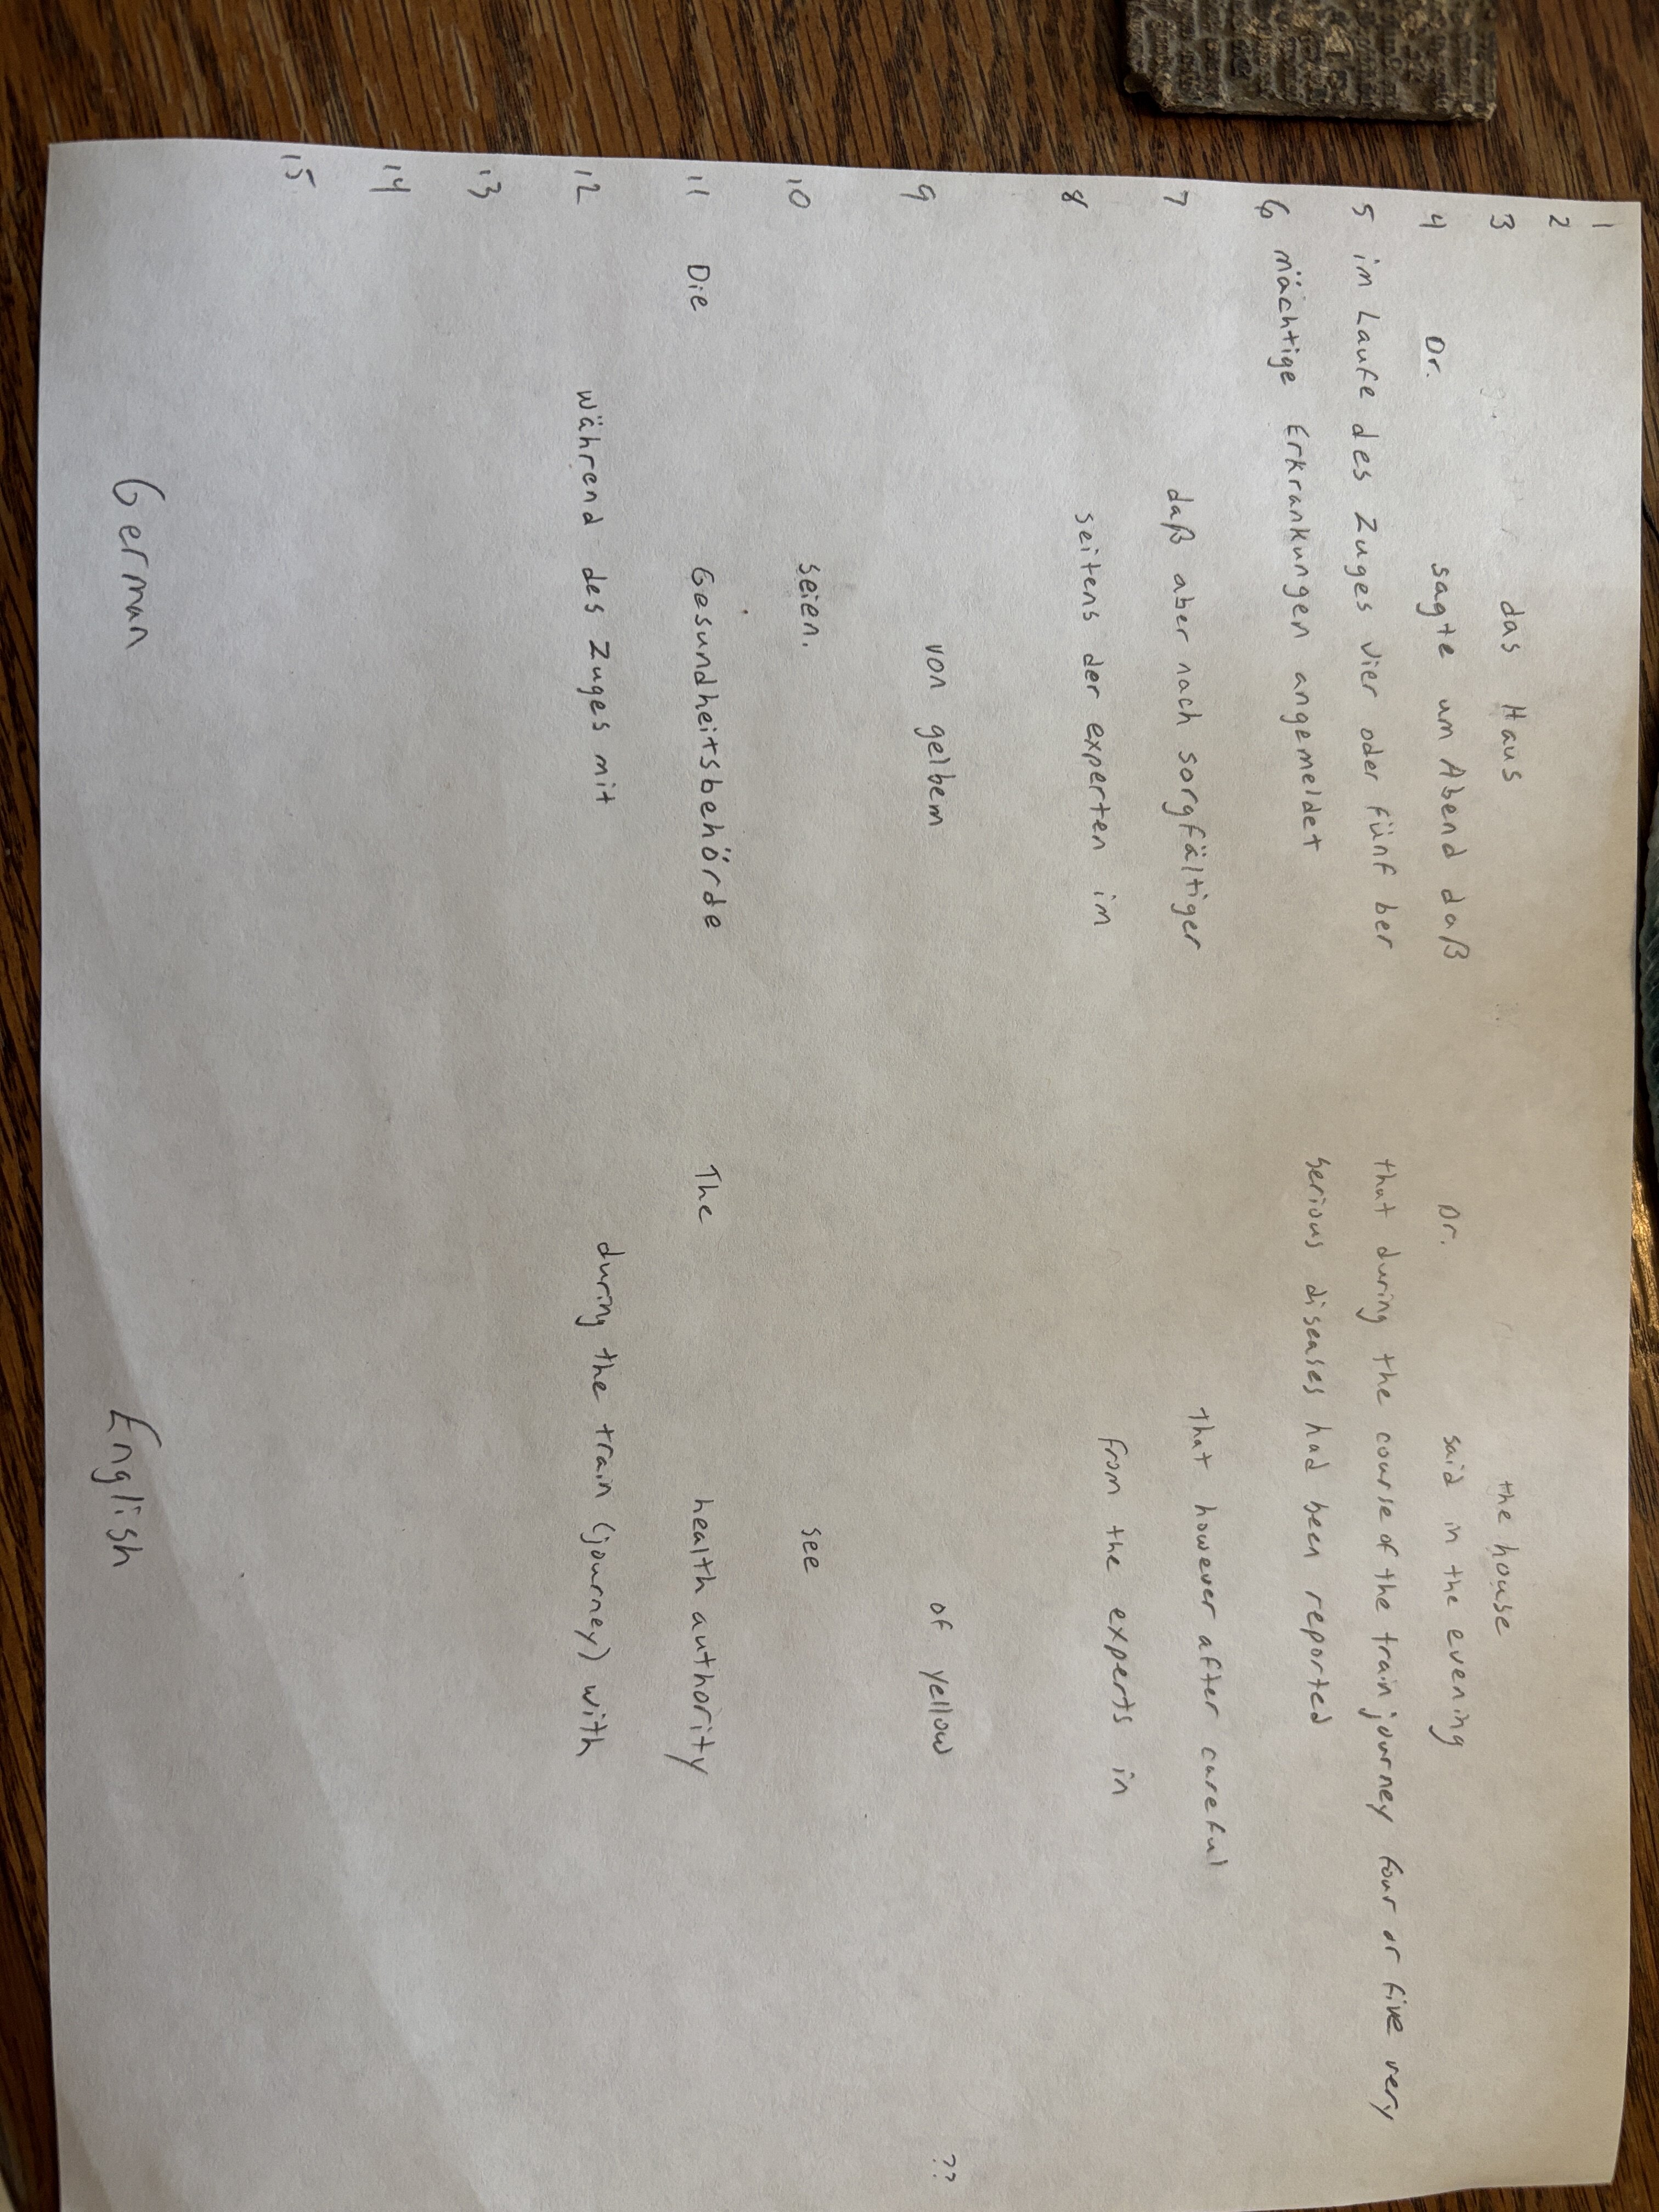 1
2
3 das Haus the house
4 Dr. sagte am Abend daß Dr. said in the evening
5 im Laufe des Zuges vier oder fünf ber that during the course of the train journey four or five very
6 mächtige Erkrankungen angemeldet serious diseases had been reported
7 daß aber nach sorgfältiger that however after careful
8 seitens der experten im from the experts in
9 von gelbem of yellow ??
10 seien. see
11 Die Gesundheitsbehörde The health authority
12 während des Zuges mit during the train (journey) with
13
14
15
German English